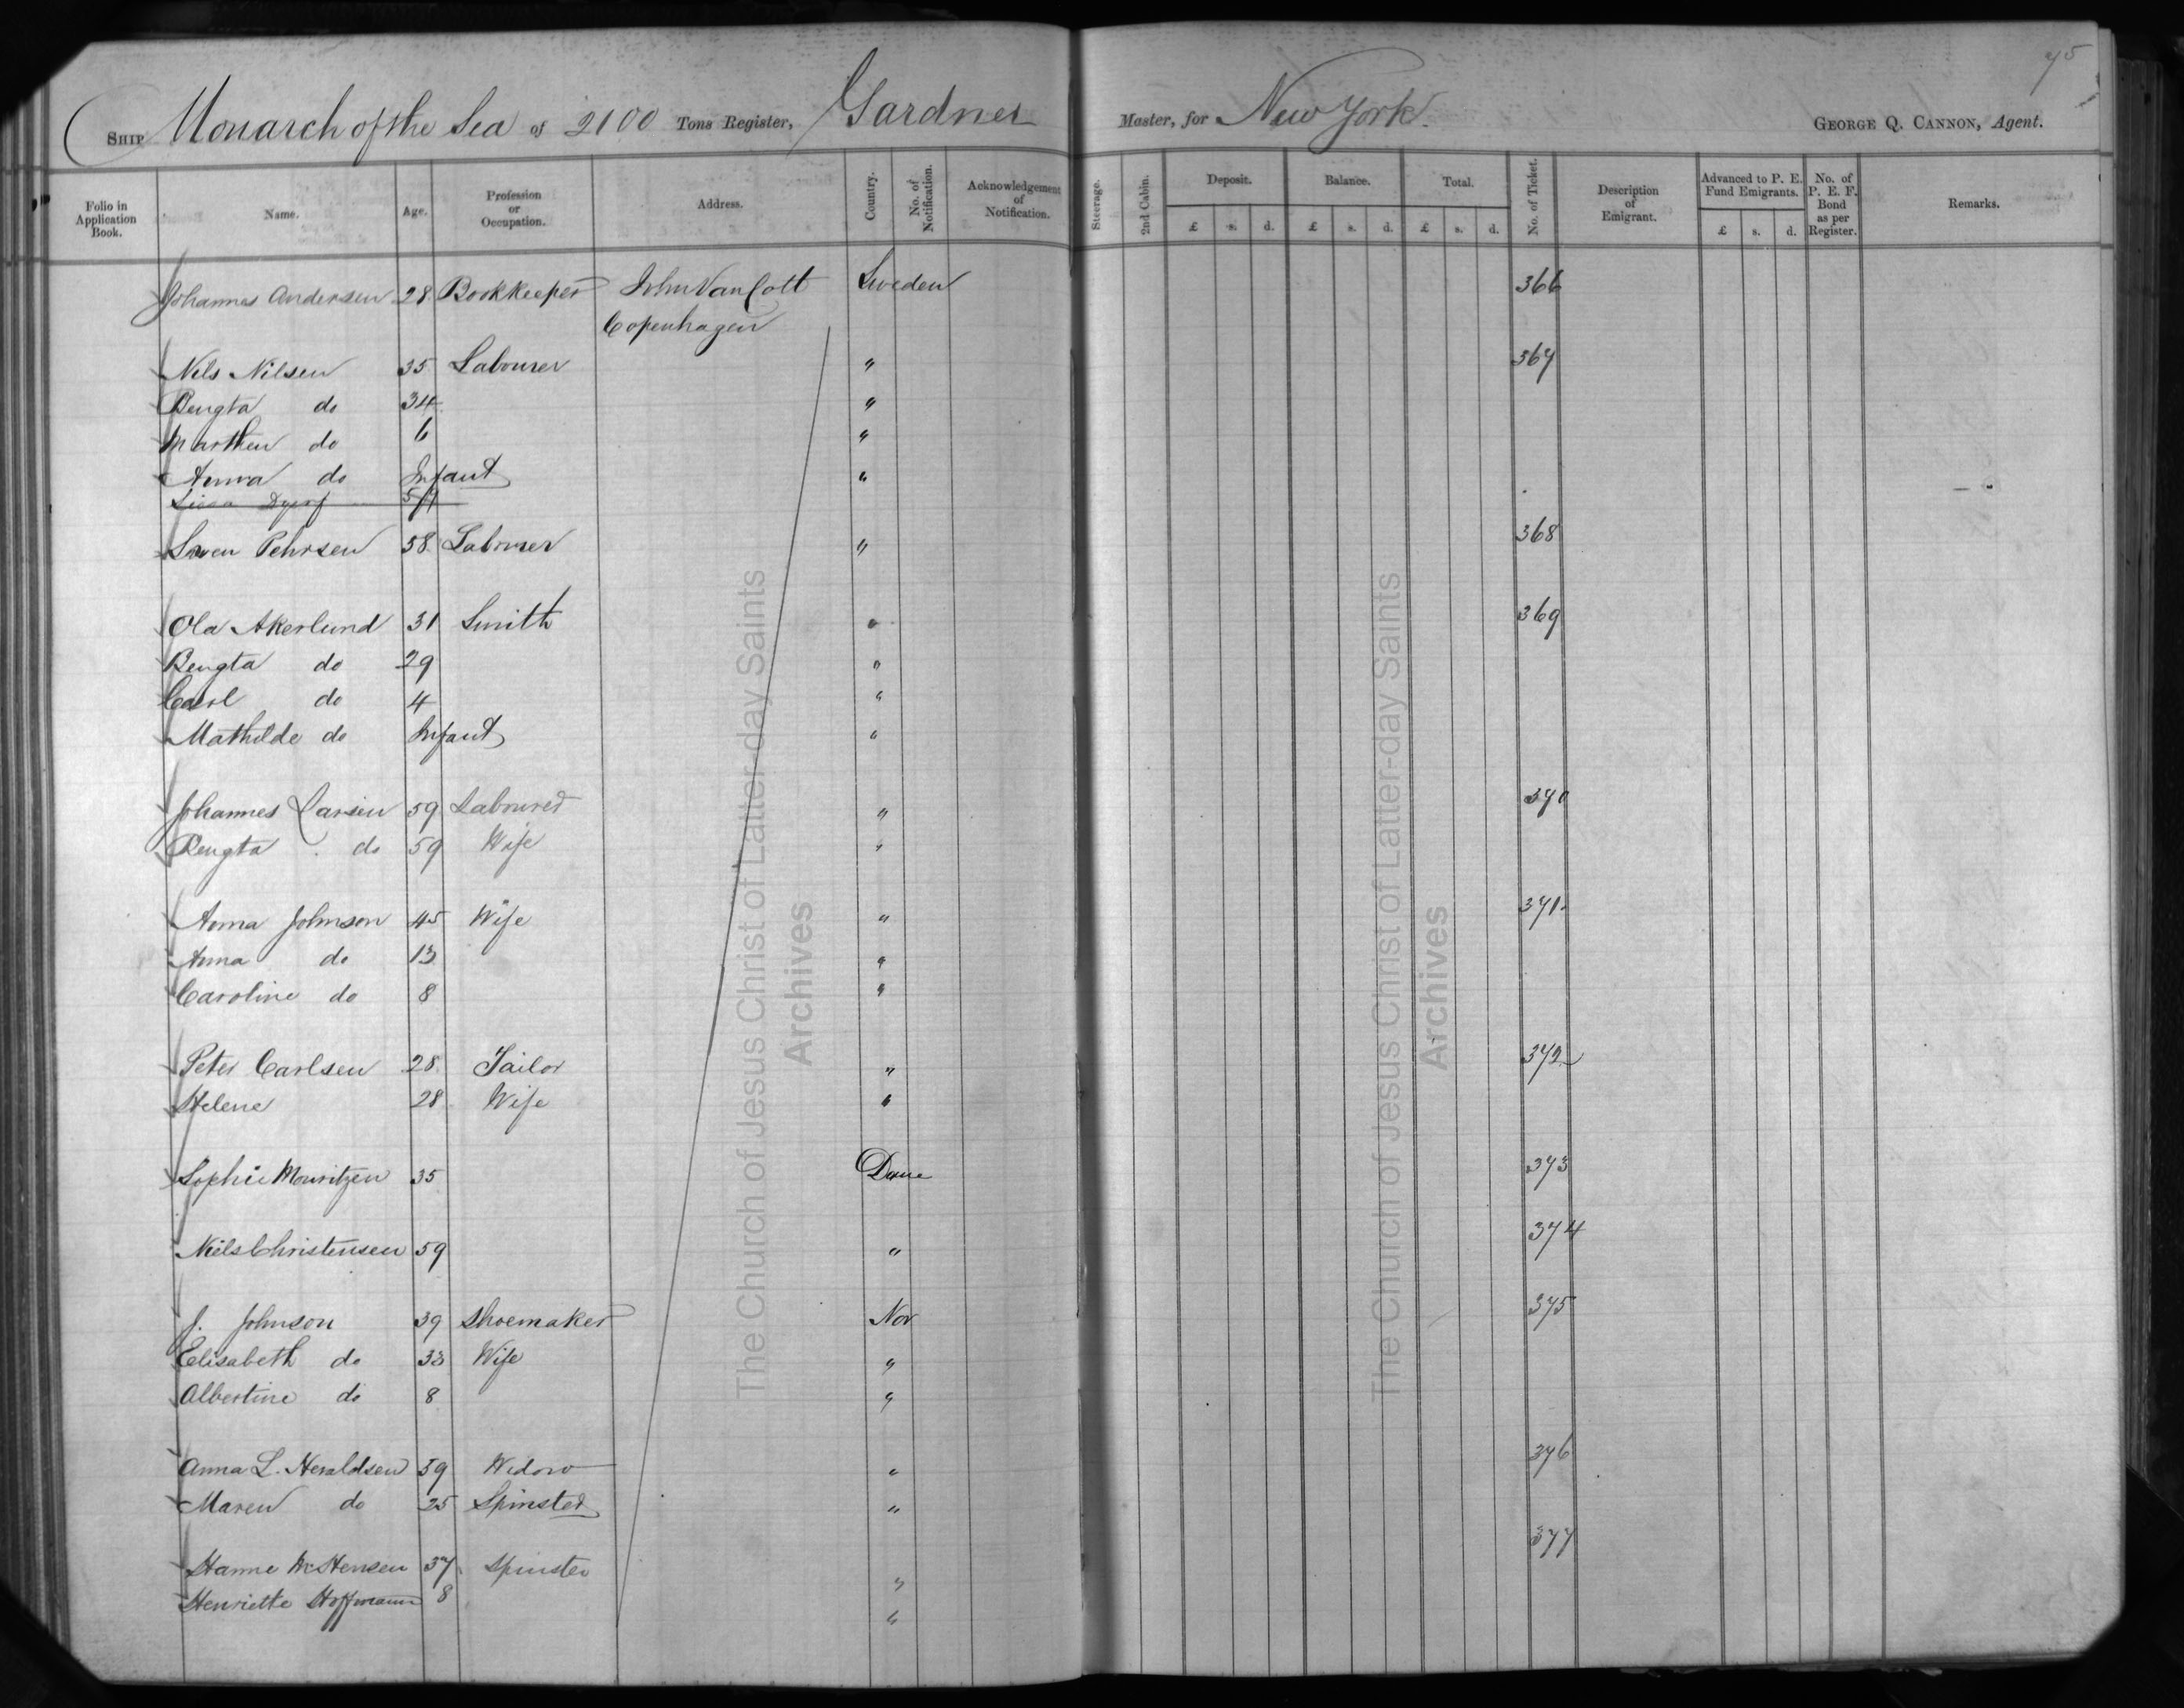 75
SHIP Monarch of the Sea of 2100 Tons Register, Gardner Master, for New York. GEORGE Q. CANNON, Agent.
Folio in Application Book. Name. Age. Profession or Occupation. Address. Country. No. of Notification. Acknowledgement of Notification. Steerage. 2nd Cabin. Deposit. Balance. Total. No. of Ticket. Description of Emigrant. Advanced to P. E. Fund Emigrants. No. of P. E. F. Bond as per Register. Remarks.
£ s. d. £ s. d. £ s. d. £ s. d.
Johannes Andersen 28 Bookkeeper John Van Cott Sweden 366
Copenhagen
Nels Nilsen 35 Labourer " 367
Bengta do 34 "
Marthen do 6 "
Anna do Infant "
Swen Pehrsen 58 Labourer " 368
Ola Akerlund 31 Smith " 369
Bengta do 29 "
Carl do 4 "
Mathilde do Infant "
Johannes Larsen 59 Labourer " 370
Bengta do 59 Wife "
Anna Johnson 45 Wife " 371
Anna do 13 "
Caroline do 8 "
Peter Carlsen 28 Tailor " 372
Helene 28 Wife "
Sophie Mouritzen 35 Dane 373
Niels Christensen 59 " 374
J. Johnson 39 Shoemaker Nor 375
Elisabeth do 33 Wife "
Albertine do 8 "
Anna L. Heraldsen 59 Widow " 376
Maren do 25 Spinster "
Hanne M. Hensen 37 Spinster " 377
Henriette Hoffmann 8 "
The Church of Jesus Christ of Latter-day Saints
Archives
The Church of Jesus Christ of Latter-day Saints
Archives